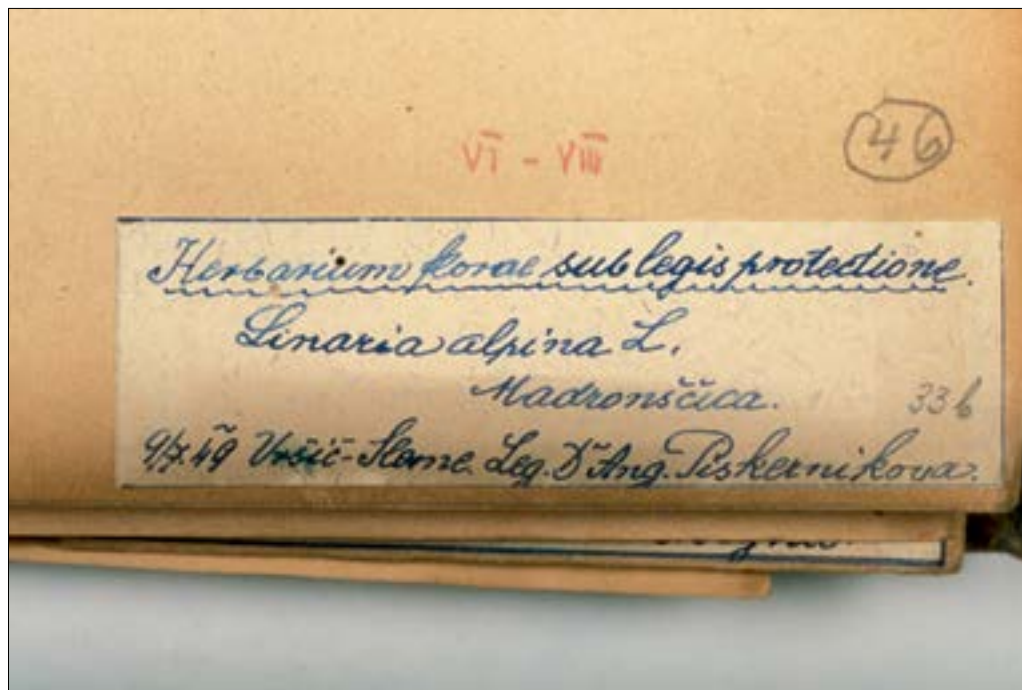 46
VI - VIII
Herbarium florae sub legis protectione.
Linaria alpina L.
Madronščica.
33 b
49 Vršič-Sleme. Leg. Dr Ang. Piskernikova.